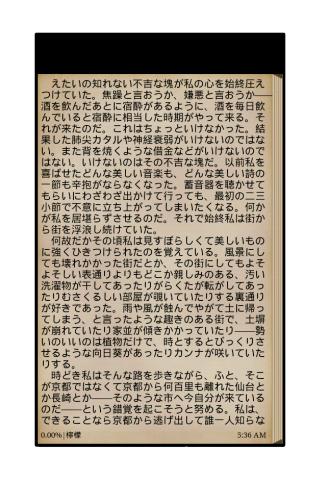 えたいの知れない不吉な塊が私の心を始終圧え
つけていた。焦躁と言おうか、嫌悪と言おうか――
酒を飲んだあとに宿酔があるように、酒を毎日飲
んでいると宿酔に相当した時期がやって来る。そ
れが来たのだ。これはちょっといけなかった。結
果した肺尖カタルや神経衰弱がいけないのではな
い。また背を焼くような借金などがいけないので
はない。いけないのはその不吉な塊だ。以前私を
喜ばせたどんな美しい音楽も、どんな美しい詩の
一節も辛抱がならなくなった。蓄音器を聴かせて
もらいにわざわざ出かけて行っても、最初の二三
小節で不意に立ち上がってしまいたくなる。何か
が私を居堪らずさせるのだ。それで始終私は街か
ら街を浮浪し続けていた。
　何故だかその頃私は見すぼらしくて美しいもの
に強くひきつけられたのを覚えている。風景にし
ても壊れかかった街だとか、その街にしてもよそ
よそしい表通りよりもどこか親しみのある、汚い
洗濯物が干してあったりがらくたが転がしてあっ
たりむさくるしい部屋が覗いていたりする裏通り
が好きであった。雨や風が蝕んでやがて土に帰っ
てしまう、と言ったような趣きのある街で、土塀
が崩れていたり家並が傾きかかっていたり――勢
いのいいのは植物だけで、時とするとびっくりさ
せるような向日葵があったりカンナが咲いていた
りする。
　時どき私はそんな路を歩きながら、ふと、そこ
が京都ではなくて京都から何百里も離れた仙台と
か長崎とか――そのような市へ今自分が来ている
のだ――という錯覚を起こそうと努める。私は、
できることなら京都から逃げ出して誰一人知らな
0.00%|檸檬
5:36 AM